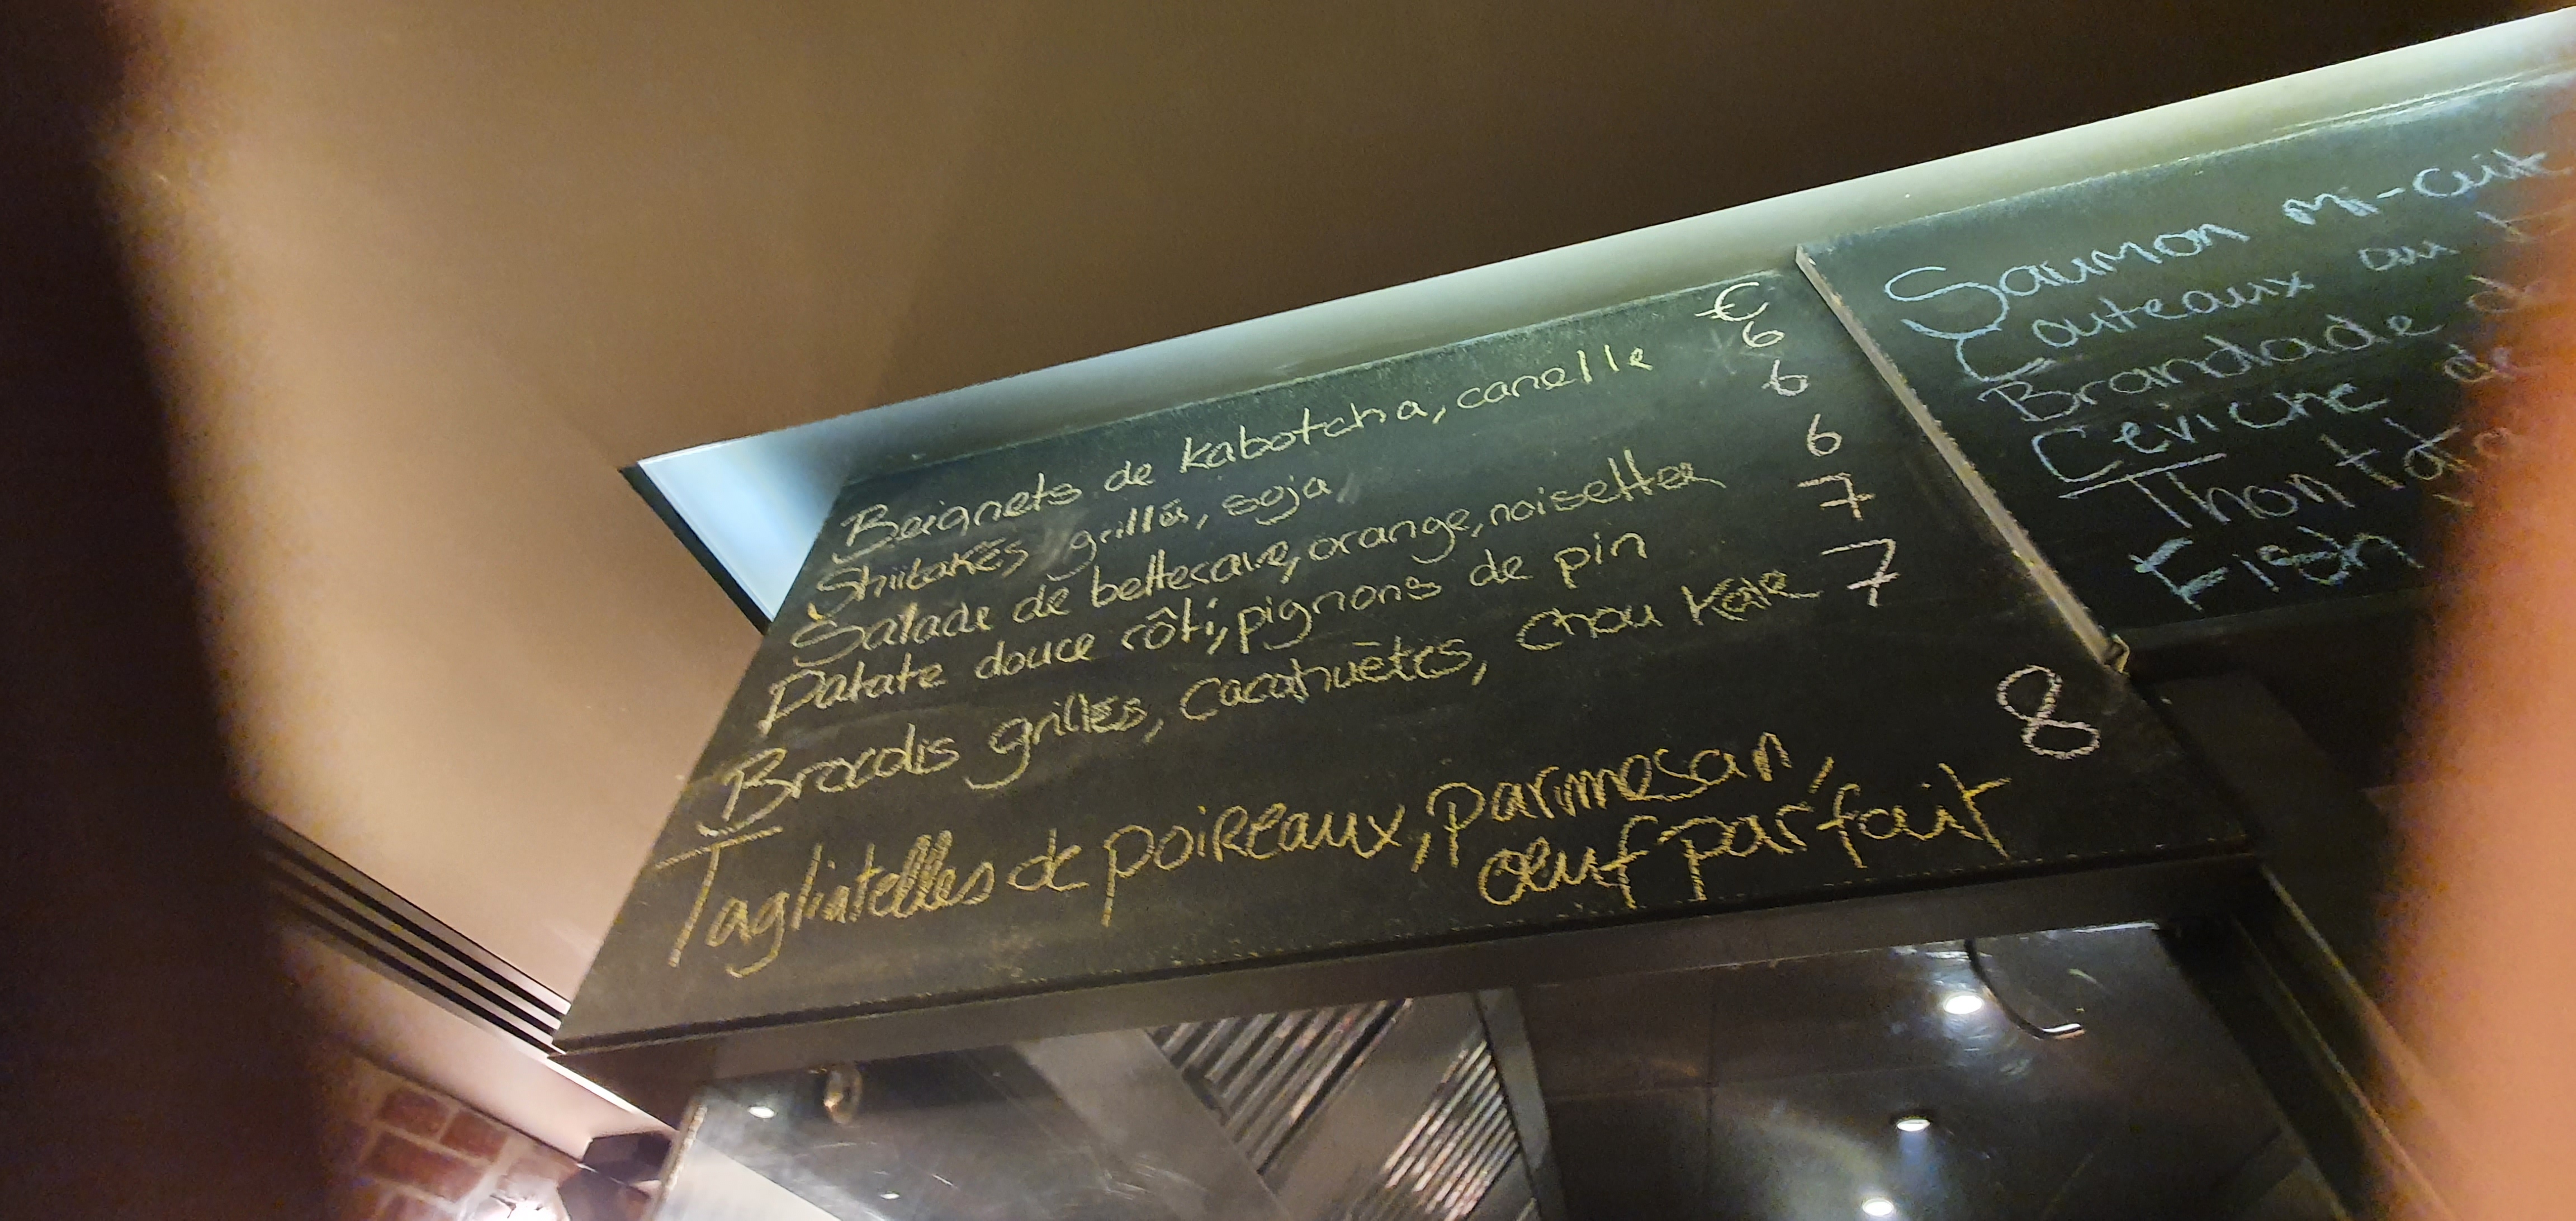 €
Beignets de kabotcha, canelle 6
Shiitakés grillés, soja 6
Salade de betterave, orange, noisettes 6
Patate douce rôti, pignons de pin 7
Brocolis grillés, cacahuètes, chou Kale 7
Tagliatelles de poireaux, parmesan, 8
œuf parfait
Saumon mi-cuit
Couteaux au
Brandade de
Ceviche de
Thon
Fish